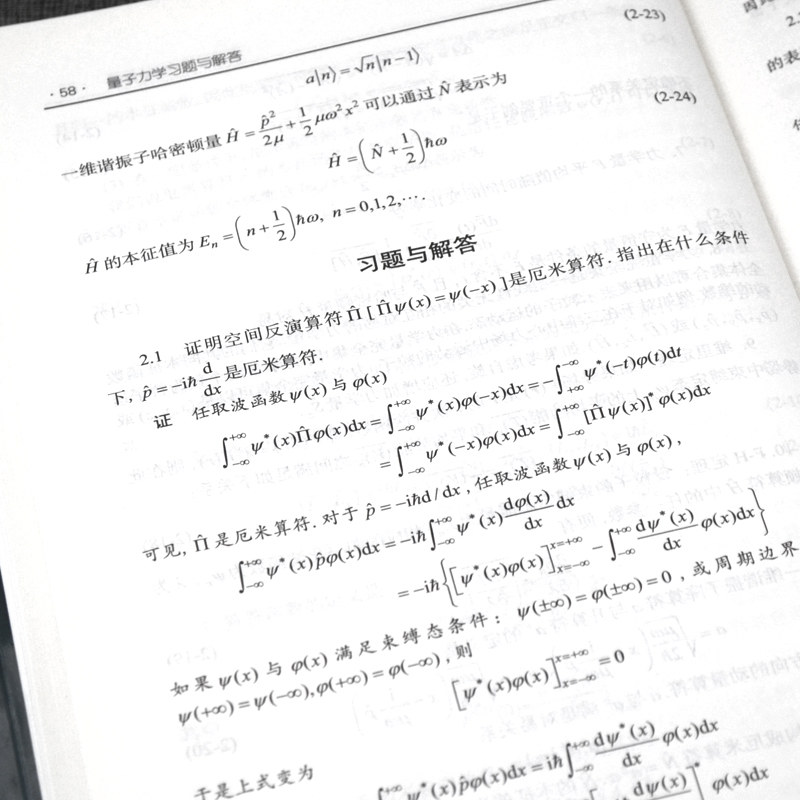 (2-23)
· 58 · 量子力学习题与解答
a|n⟩=√n|n−1⟩
一维谐振子哈密顿量 Ĥ=p̂²/2μ+1/2 μω²x² 可以通过 N̂ 表示为
(2-24)
Ĥ=(N̂+1/2)ℏω
Ĥ 的本征值为 Eₙ=(n+1/2)ℏω, n=0,1,2,⋯.
习题与解答
2.1 证明空间反演算符 Π̂[Π̂ψ(x)=ψ(−x)]是厄米算符. 指出在什么条件
下, p̂=−iℏ d/dx 是厄米算符.
证 任取波函数 ψ(x) 与 φ(x)
∫₋∞⁺∞ψ*(x)Π̂φ(x)dx=∫₋∞⁺∞ψ*(x)φ(−x)dx=−∫₊∞⁻∞ψ*(−t)φ(t)dt
=∫₋∞⁺∞ψ*(−x)φ(x)dx=∫₋∞⁺∞[Π̂ψ(x)]*φ(x)dx
可见, Π̂ 是厄米算符. 对于 p̂=−iℏd/dx, 任取波函数 ψ(x) 与 φ(x),
∫₋∞⁺∞ψ*(x)p̂φ(x)dx=−iℏ∫₋∞⁺∞ψ*(x) dφ(x)/dx dx
=−iℏ{[ψ*(x)φ(x)]x=+∞ x=−∞ −∫₋∞⁺∞ dψ*(x)/dx φ(x)dx}
如果 ψ(x) 与 φ(x) 满足束缚态条件: ψ(±∞)=φ(±∞)=0, 或周期边界
ψ(+∞)=ψ(−∞),φ(+∞)=φ(−∞), 则
[ψ*(x)φ(x)]x=+∞ x=−∞ =0
于是上式变为
∫ ψ*(x)p̂φ(x)dx=iℏ∫₋∞⁺∞ dψ*(x)/dx φ(x)dx
dψ(x)/ ]* φ(x)dx